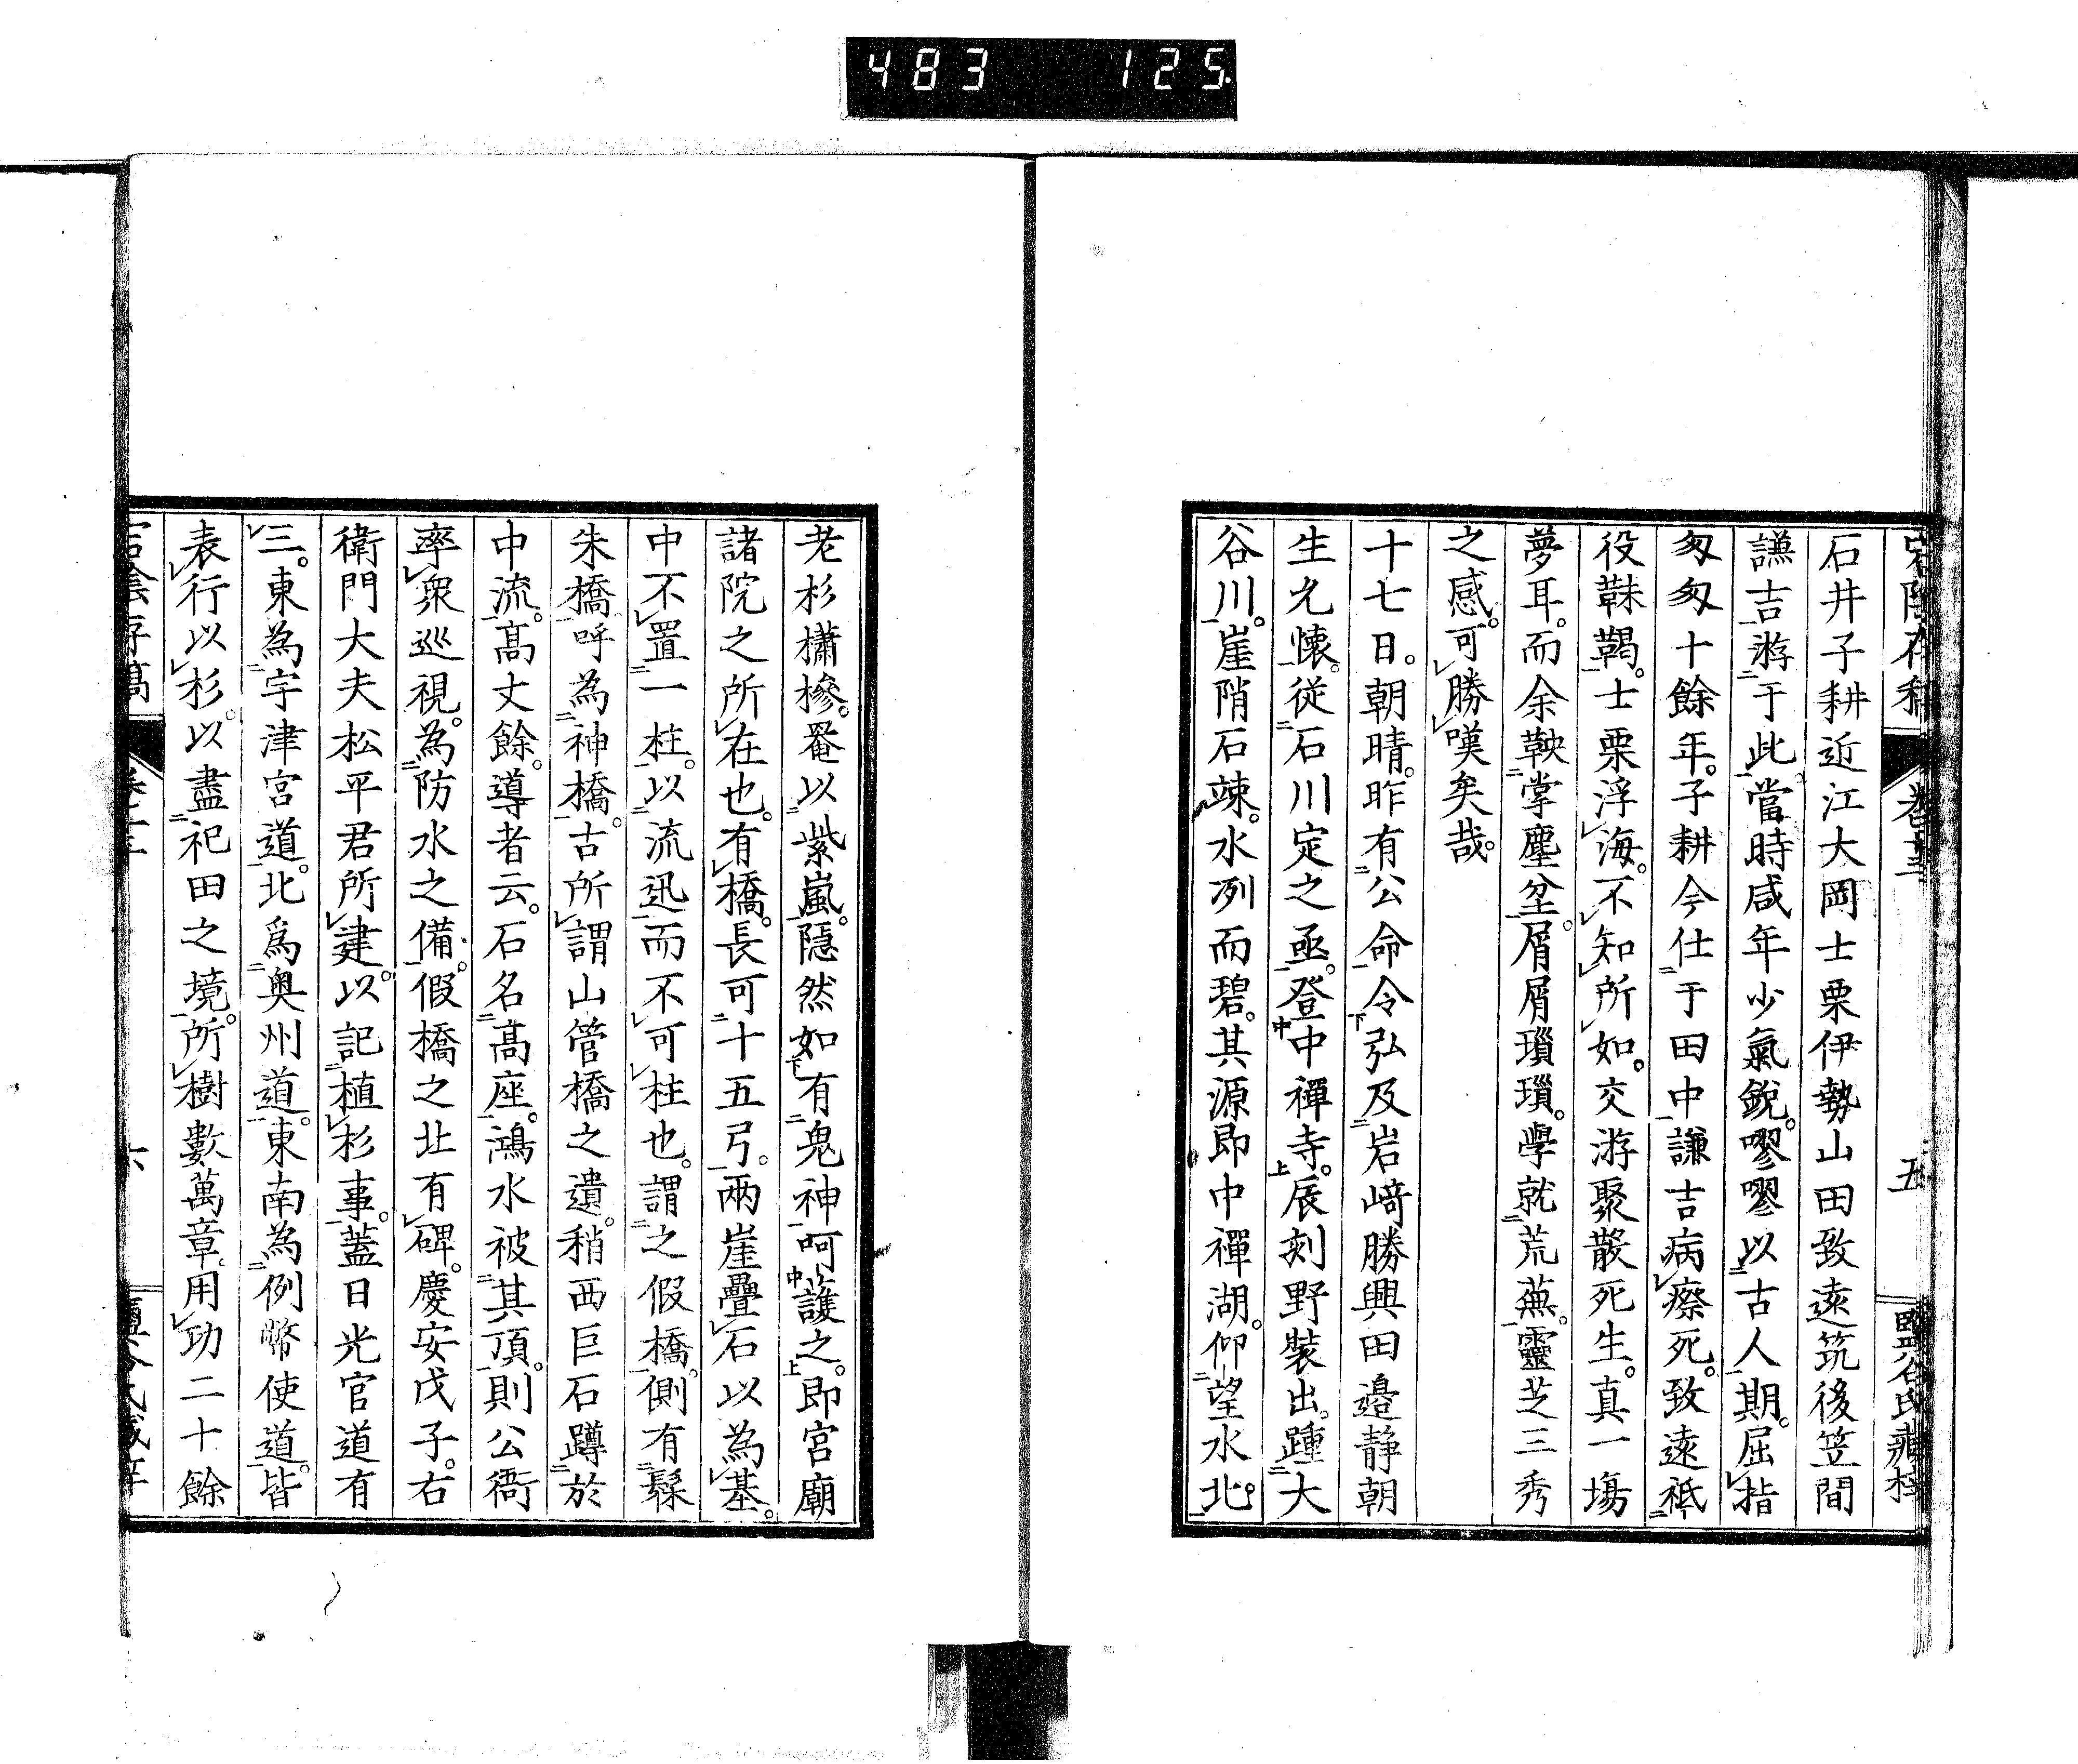 483 125
宕陰存稿 卷十三 五 鹽谷氏藏梓
石井子耕近江大岡士栗伊勢山田致遠筑後笠間
謙吉游于此當時咸年少氣銳。嘐嘐以古人期。屈指
匆匆十餘年。子耕今仕于田中謙吉病瘵死。致遠祗
役韎鞨。士栗浮海。不知所如。交游聚散死生。真一塲
夢耳。而余鞅掌塵坌。屑屑瑣瑣。學就荒蕪。靈芝三秀
之感。可勝嘆矣哉。
十七日。朝晴。昨有公命令弘及岩﨑勝興田邉静朝
生允懐。從石川定之亟。登中禪寺。辰刻野裝出。踵大
谷川。崖陗石竦。水冽而碧。其源即中禪湖。仰望水北。
老杉橚槮。罨以紫嵐。隱然如有鬼神呵護之。即宮廟
諸院之所在也。有橋。長可十五弓。兩崖疊石以為基。
中不置一柱。以流迅而不可柱也。謂之假橋。側有髹
朱橋。呼為神橋。古所謂山管橋之遺。稍西巨石蹲於
中流。高丈餘。導者云。石名高座。鴻水被其頂。則公衙
率衆巡視。為防水之備。假橋之北有碑。慶安戊子。右
衛門大夫松平君所建。以記植杉事。蓋日光官道有
三。東為宇津宮道。北爲奥州道。東南為例幣使道。皆
表行以杉。以盡祀田之境。所樹數萬章。用功二十餘
宕陰存稿 六